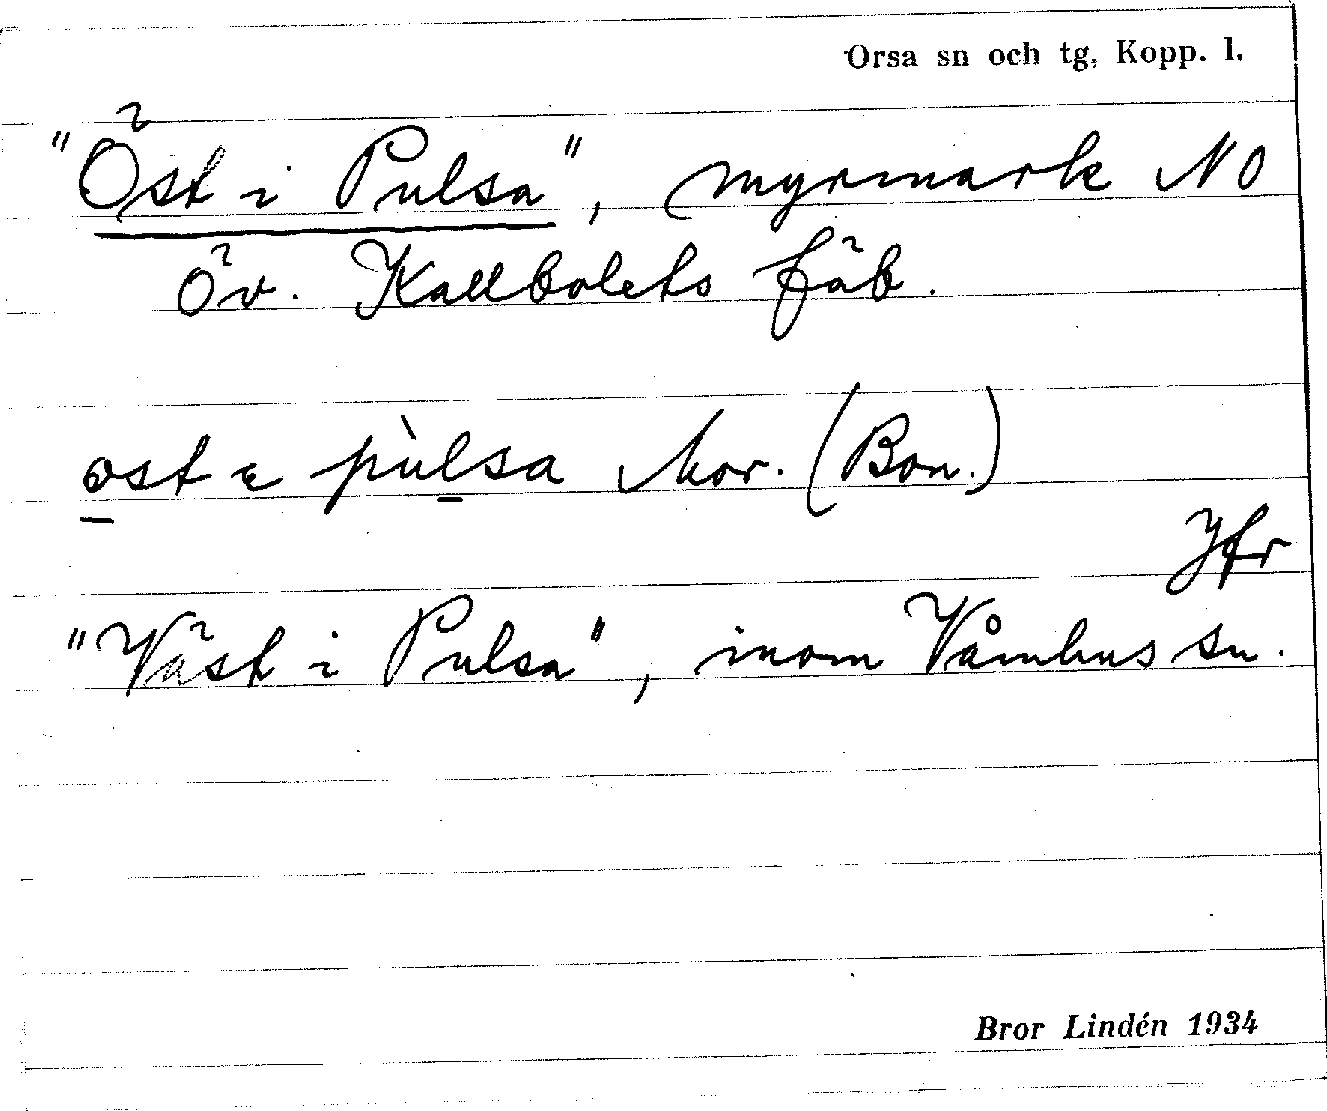 Orsa sn och tg, Kopp. l.
"Öst i Pulsa", myrmark NO
öv. Kallbolets fäb.
ost e pùlsa Mor. (Bon.)
Jfr
"Väst i Pulsa", inom Våmhus sn.
Bror Lindén 1934